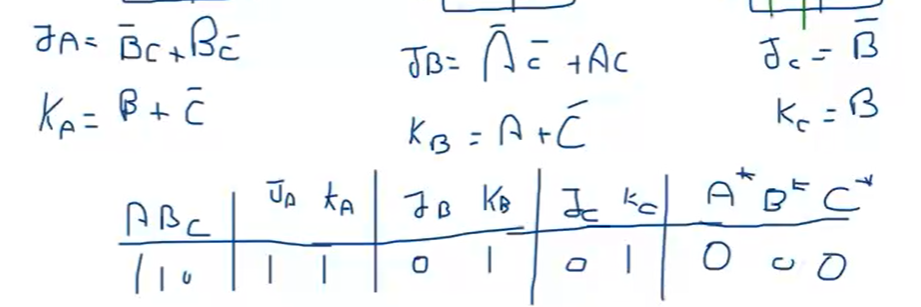 JA = B̄C + BC̄ JB = ĀC̄ + AC Jc = B̄
KA = B + C̄ KB = A + C̄ Kc = B
ABC | JA KA | JB KB | Jc Kc | A* B* C*
110 | 1 1 | 0 1 | 0 1 | 0 0 0